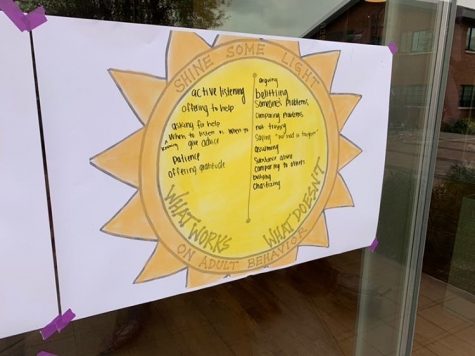 SHINE SOME LIGHT
active listening
offering to help
asking for help
knowing when to listen vs. when to
give advice
patience
offering gratitude
WHAT WORKS
arguing
belittling
someone's problems,
comparing problems
not trying
saying "we had it tougher"
assuming
substance abuse
comparing to others
bullying
chastising
WHAT DOESN'T
ON ADULT BEHAVIOR